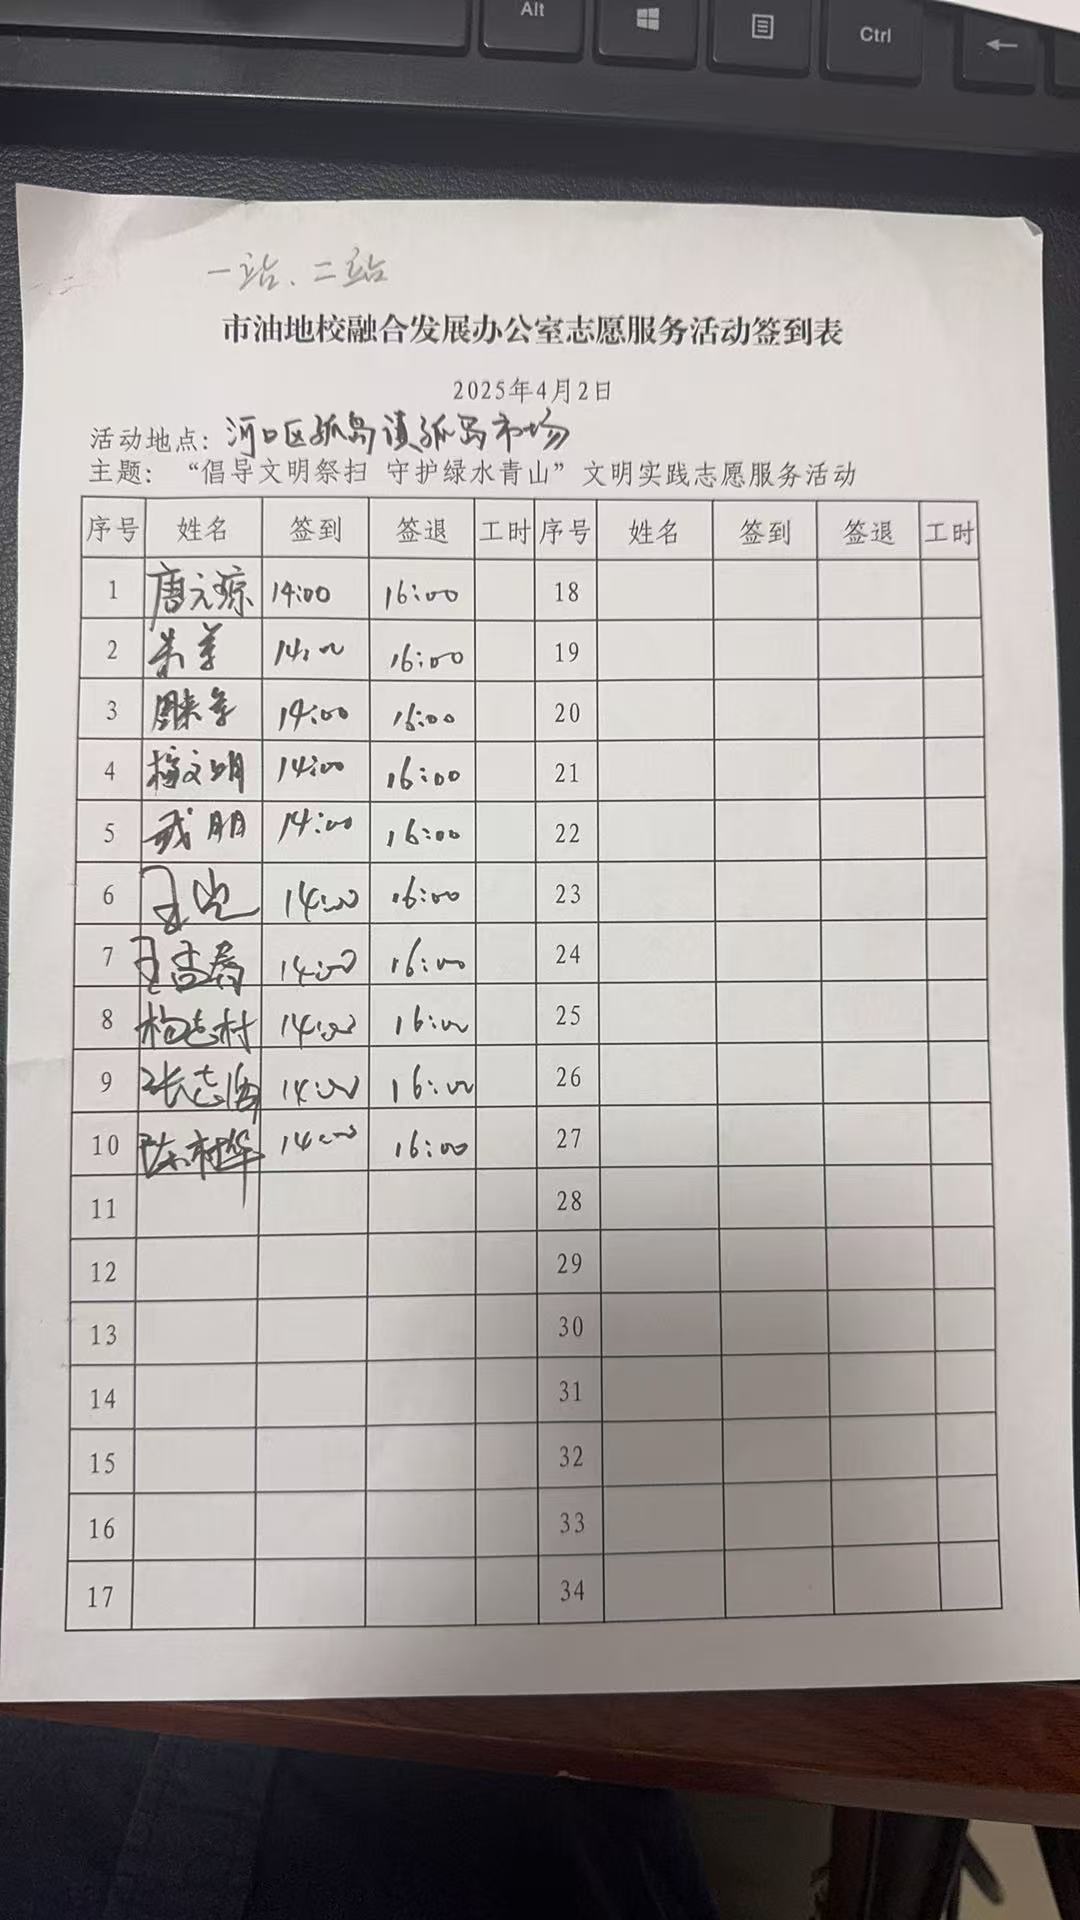 Alt
Ctrl
一站、二站
市油地校融合发展办公室志愿服务活动签到表
2025年4月2日
活动地点：河口区孤岛镇孤岛市场
主题：“倡导文明祭扫 守护绿水青山”文明实践志愿服务活动
序号 姓名 签到 签退 工时 序号 姓名 签到 签退 工时
1 唐元琼 14:00 16:00 18
2 14:00 16:00 19
3 14:00 16:00 20
4 梅文明 14:00 16:00 21
5 戎朋 14:00 16:00 22
6 14:00 16:00 23
7 14:00 16:00 24
8 杨志村 14:00 16:00 25
9 14:00 16:00 26
10 陈树华 14:00 16:00 27
11 28
12 29
13 30
14 31
15 32
16 33
17 34